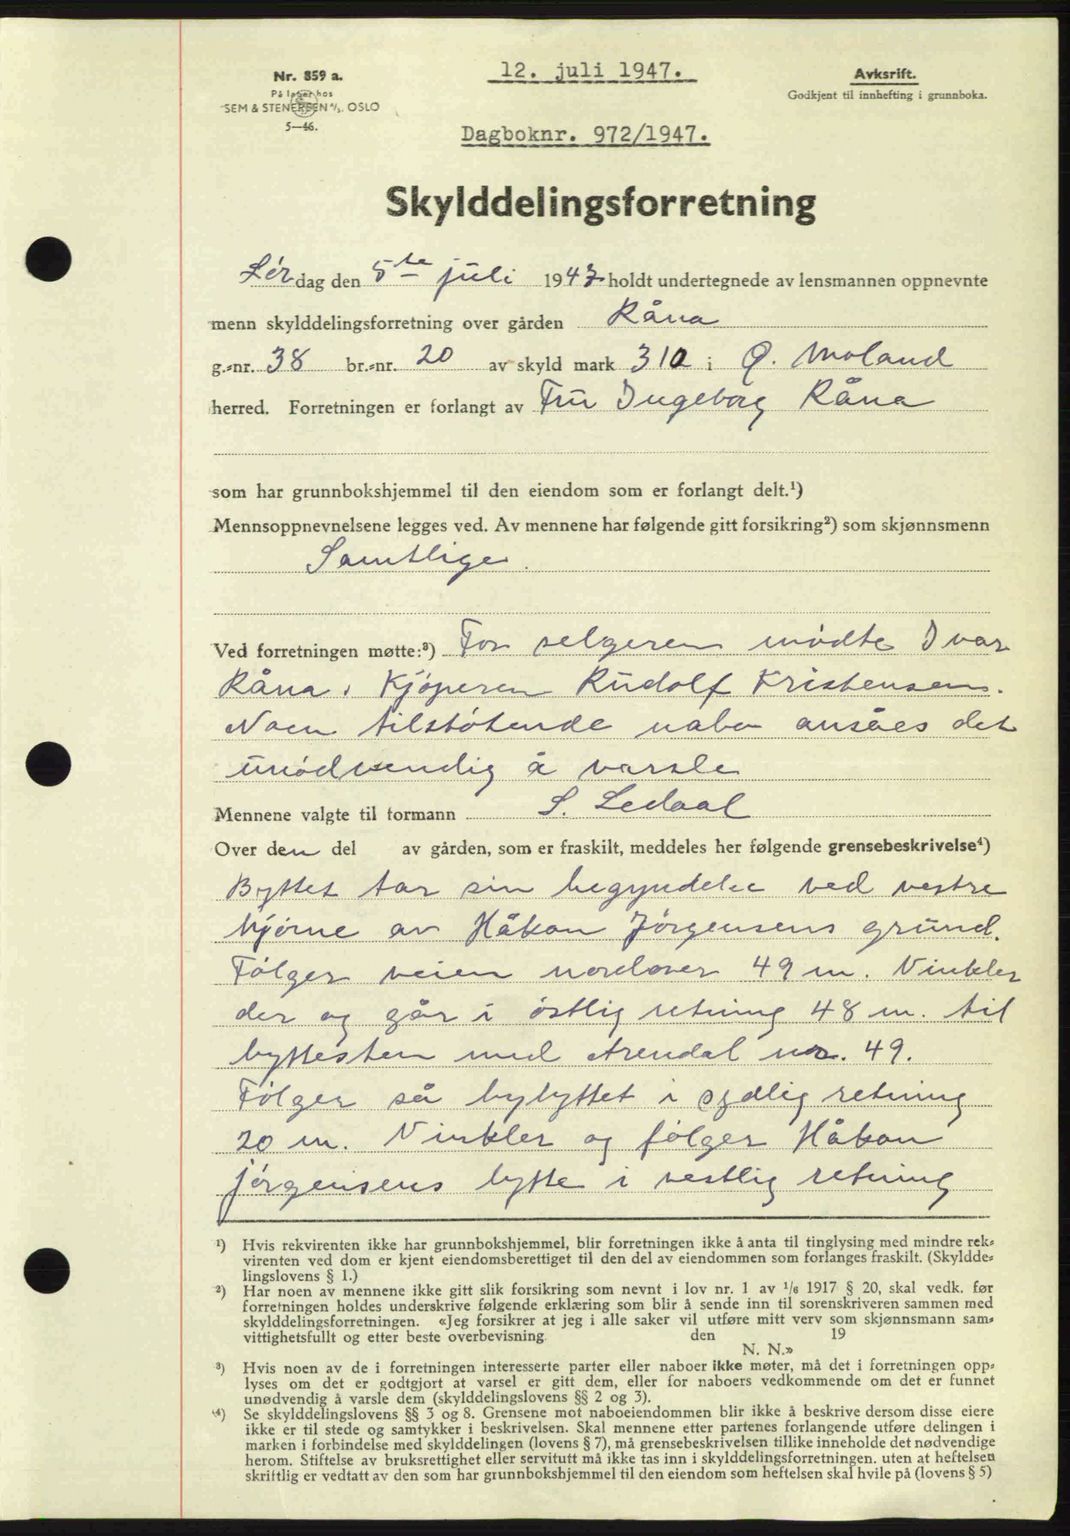 Nr. 859 a.
På lager hos
SEM & STENERSEN A/S. OSLO
5—46.
12. juli 1947.
Avksrift.
Godkjent til innhefting i grunnboka.
Dagboknr. 972/1947.
Skylddelingsforretning
Lördag den 5te juli 1947 holdt undertegnede av lensmannen oppnevnte
menn skylddelingsforretning over gården Råna
g.-nr. 38 br.-nr. 20 av skyld mark 310 i Ø. Moland
herred. Forretningen er forlangt av Fru Ingeborg Råna
som har grunnbokshjemmel til den eiendom som er forlangt delt.¹)
Mennsoppnevnelsene legges ved. Av mennene har følgende gitt forsikring²) som skjønnsmenn
Samtlige.
Ved forretningen møtte:³) For selgeren mödte Ivar
Råna, Kjöperen Rudolf Kristensen.
Noen tilstötende nabo ansåes det
unödvendig å varsle
Mennene valgte til formann S. Ledaal
Over den del av gården, som er fraskilt, meddeles her følgende grensebeskrivelse⁴)
Byttet tar sin begyndelse ved vestre
hjörne av Håkon Jörgensens grund.
Fölger veien nordover 49 m. Vinkler
der og går i östlig retning 48 m. til
byttesten med Arendal no. 49.
Fölger så bybyttet i sydlig retning
20 m. Vinkler og fölger Håkon
Jörgensens bytte i vestlig retning
¹) Hvis rekvirenten ikke har grunnbokshjemmel, blir forretningen ikke å anta til tinglysing med mindre rek-
virenten ved dom er kjent eiendomsberettiget til den del av eiendommen som forlanges fraskilt. (Skyldde-
lingslovens § 1.)
²) Har noen av mennene ikke gitt slik forsikring som nevnt i lov nr. 1 av 1/6 1917 § 20, skal vedk. før
forretningen holdes underskrive følgende erklæring som blir å sende inn til sorenskriveren sammen med
skylddelingsforretningen. «Jeg forsikrer at jeg i alle saker vil utføre mitt verv som skjønnsmann sam-
vittighetsfullt og etter beste overbevisning den 19
N. N.»
³) Hvis noen av de i forretningen interesserte parter eller naboer ikke møter, må det i forretningen opp-
lyses om det er godtgjort at varsel er gitt dem, eller for naboers vedkommende om det er funnet
unødvendig å varsle dem (skylddelingslovens §§ 2 og 3).
⁴) Se skylddelingslovens §§ 3 og 8. Grensene mot naboeiendommen blir ikke å beskrive dersom disse eiere
ikke er til stede og samtykker i beskrivelsen. Skal mennene etter partenes forlangende utføre delingen i
marken i forbindelse med skylddelingen (lovens § 7), må grensebeskrivelsen tillike inneholde det nødvendige
herom. Stiftelse av bruksrettighet eller servitutt må ikke tas inn i skylddelingsforretningen. uten at heftelsen
skriftlig er vedtatt av den som har grunnbokshjemmel til den eiendom som heftelsen skal hvile på (lovens § 5)